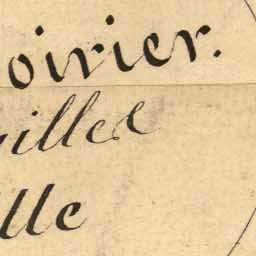 oirier.
illet
lle